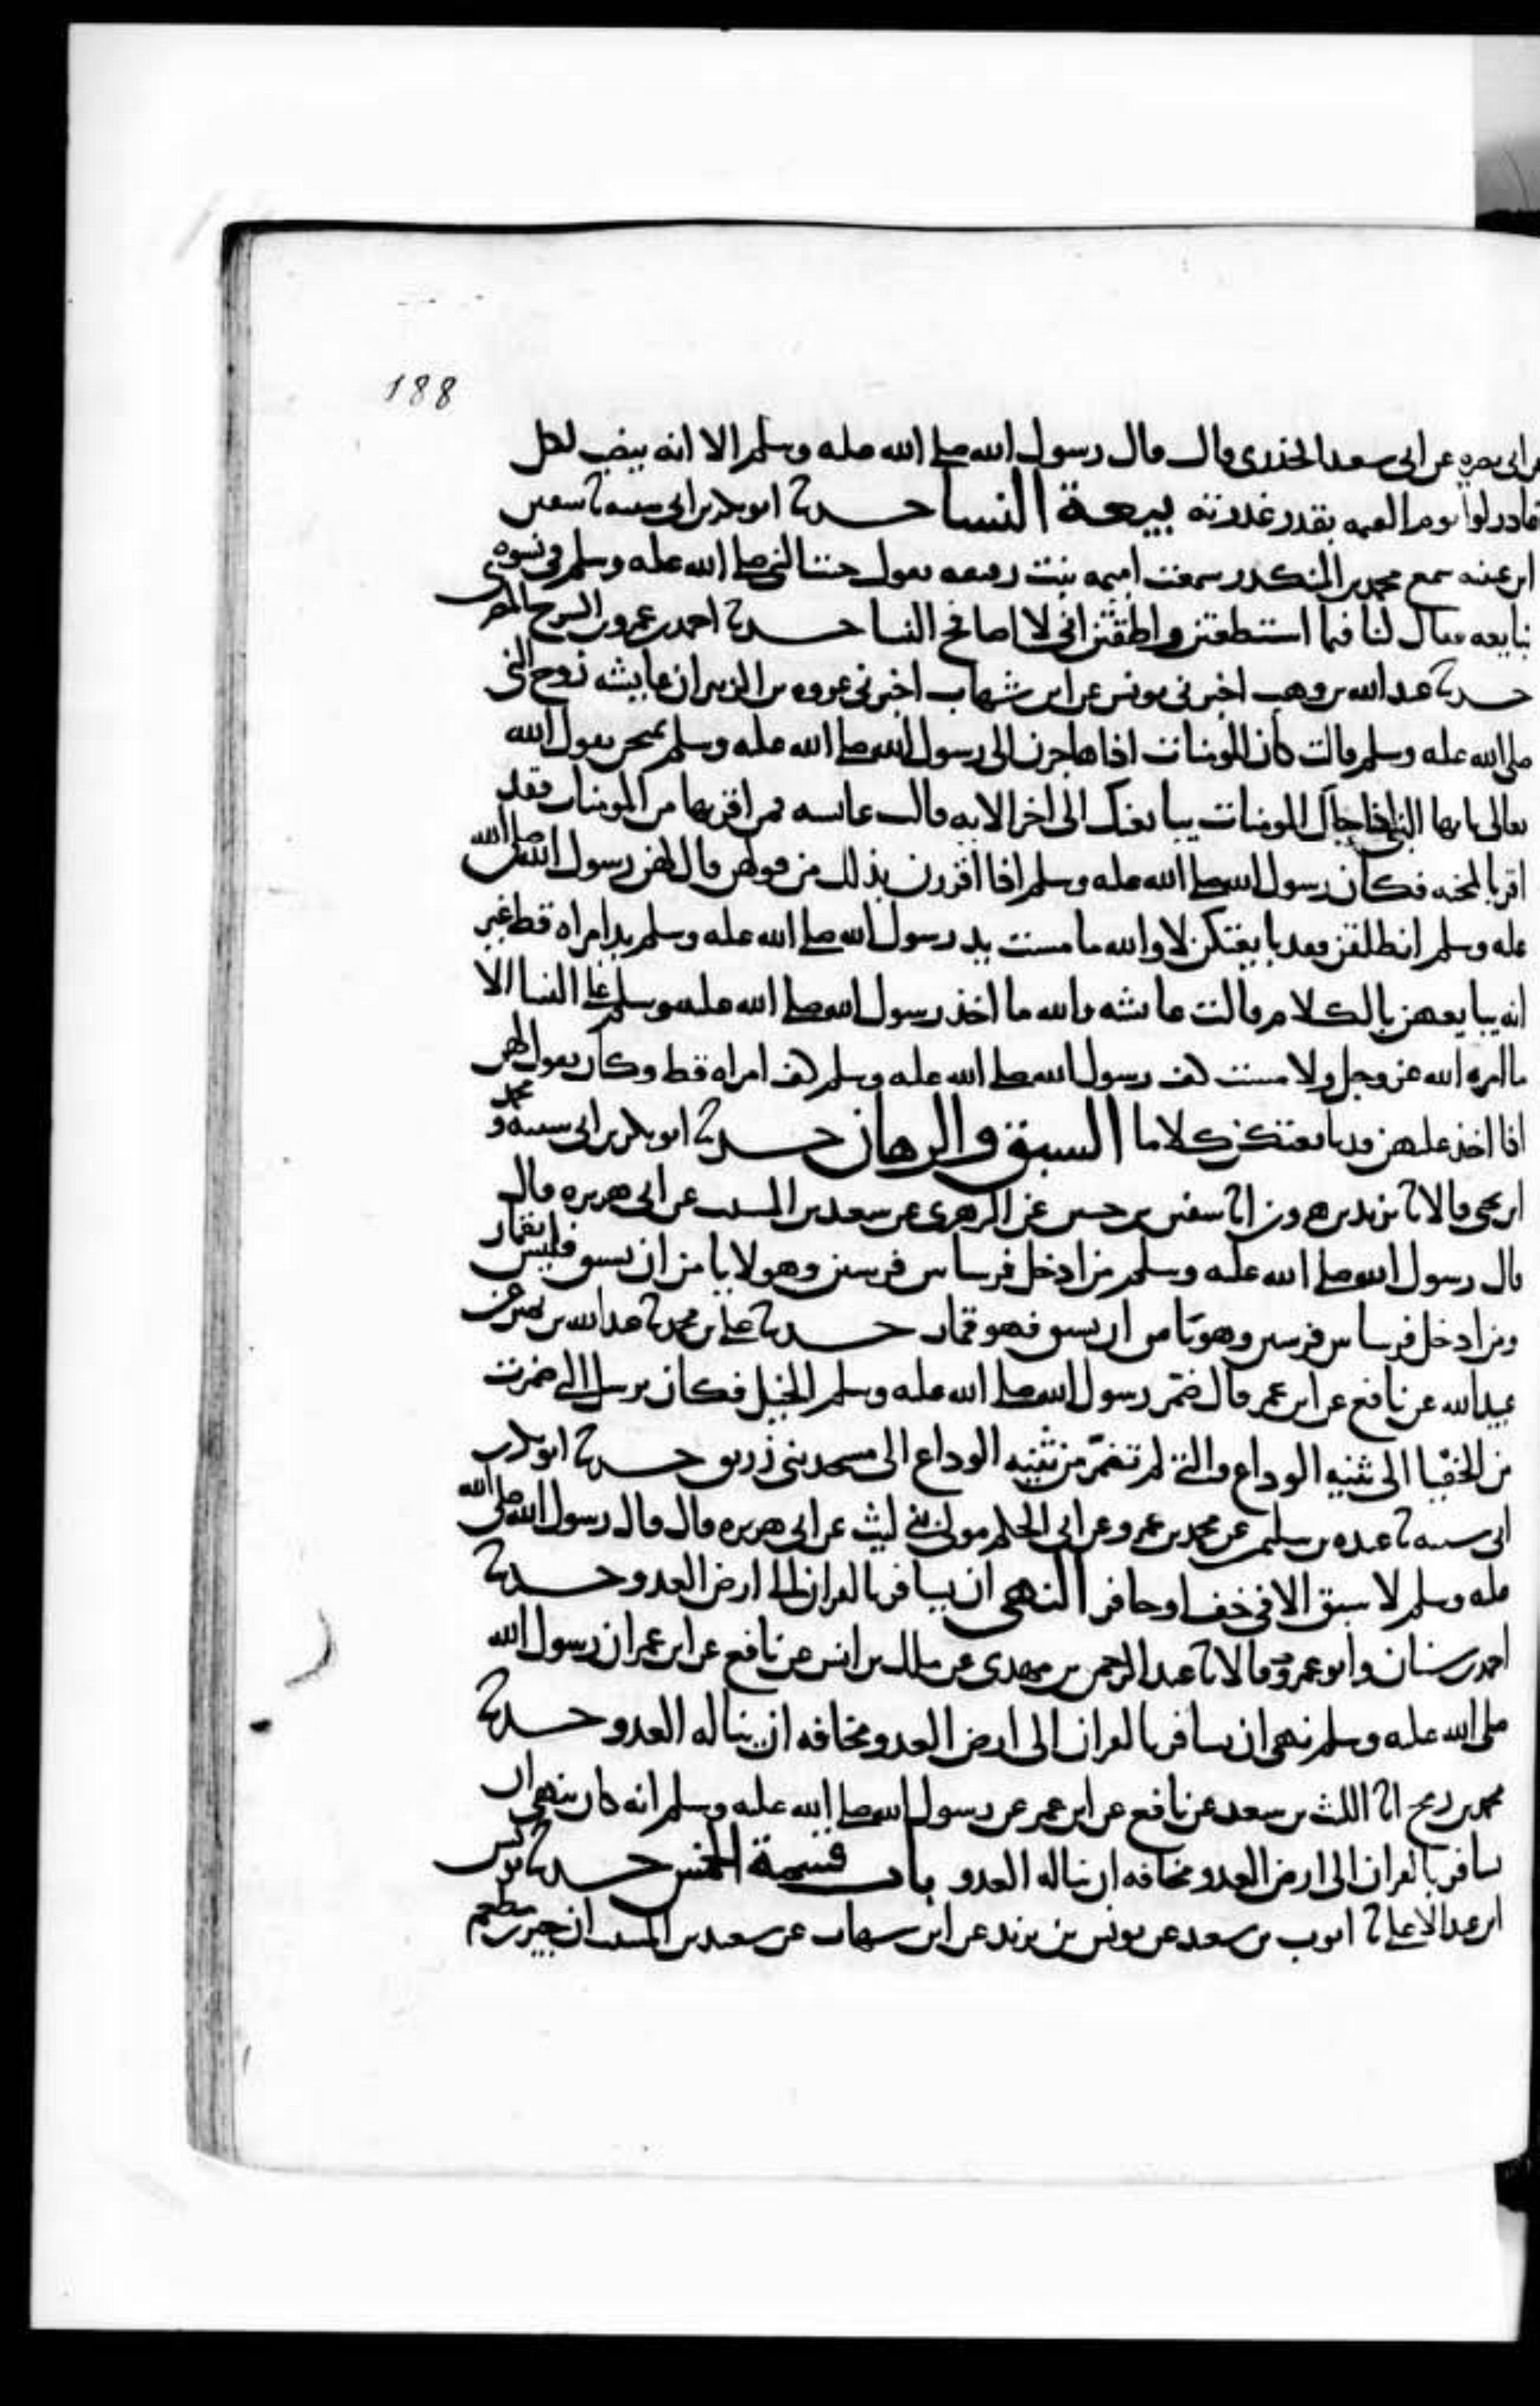 188
عن ابى نضره عن ابى سعيد الخذرى قال قال رسول الله صلى الله عليه وسلم الا انه ينصب لكل
غادر لوا يوم القيمه بقدر غدرته بيعة النسا حدثنا ابو بكر بن ابى شيبه ثنا سفين
ابن عيينه سمع محمد بن المنكدر سمعت اميمه بنت رقيقه تقول جئت النبى صلى الله عليه وسلم فى نسوه
نبايعه فقال لنا فيما استطعتن واطقتن انى لا اصافح النسا حدثنا احمد بن عمرو بن السرح المصرى
حدثنا عبد الله بن وهب اخبرنى يونس عن ابن شهاب اخبرنى عروه بن الزبير ان عايشه زوج النبى
صلى الله عليه وسلم قالت كان المومنات اذا هاجرن الى رسول الله صلى الله عليه وسلم يمتحن بقول الله
تعالى يايها النبى اذا جاك المومنات يبايعنك الى اخر الايه قالت عايشه فمن اقر بها من المومنات فقد
اقر بالمحنه فكان رسول الله صلى الله عليه وسلم اذا اقررن بذلك من قولهن قال لهن رسول الله صلى الله
عليه وسلم انطلقن فقد بايعتكن لا والله ما مست يد رسول الله صلى الله عليه وسلم يد امراه قط غير
انه يبايعهن بالكلام قالت عايشه والله ما اخذ رسول الله صلى الله عليه وسلم على النسا الا
ما امره الله عز وجل ولا مست كف رسول الله صلى الله عليه وسلم كف امراه قط وكان يقول لهن
اذا اخذ عليهن قد بايعتكن كلاما السبق والرهان حدثنا ابو بكر بن ابى شيبه ومحمد
ابن يحيى قالا ثنا يزيد بن هرون انا سفين بن حسين عن الزهرى عن سعيد بن المسيب عن ابى هريره قال
قال رسول الله صلى الله عليه وسلم من ادخل فرسا بين فرسين وهو لا يامن ان يسبق فليس بقمار
ومن ادخل فرسا بين فرسين وهو يامن ان يسبق فهو قمار حدثنا على بن محمد ثنا عبد الله بن نمير عن
عبيد الله عن نافع عن ابن عمر قال ضمر رسول الله صلى الله عليه وسلم الخيل فكان يرسل التى ضمرت
من الحفيا الى ثنيه الوداع والتى لم تضمر من ثنيه الوداع الى مسجد بنى زريق حدثنا ابو بكر بن
ابى شيبه ثنا عبده بن سليمن عن محمد بن عمرو عن ابى الحكم مولى بنى ليث عن ابى هريره قال قال رسول الله صلى الله
عليه وسلم لا سبق الا فى خف او حافر النهى ان يسافر بالقران الى ارض العدو حدثنا
احمد بن سنان وابو عمر قالا ثنا عبد الرحمن بن مهدى عن ملك بن انس عن نافع عن ابن عمر ان رسول الله
صلى الله عليه وسلم نهى ان يسافر بالقران الى ارض العدو مخافه ان يناله العدو حدثنا
محمد بن رمح انا الليث بن سعد عن نافع عن ابن عمر عن رسول الله صلى الله عليه وسلم انه كان ينهى ان
يسافر بالقران الى ارض العدو مخافه ان يناله العدو باب قسمة الخمس حدثنا يونس
ابن عبد الاعلى ثنا ايوب بن سعيد عن يونس بن يزيد عن ابن شهاب عن سعيد بن المسيب ان جبير بن مطعم